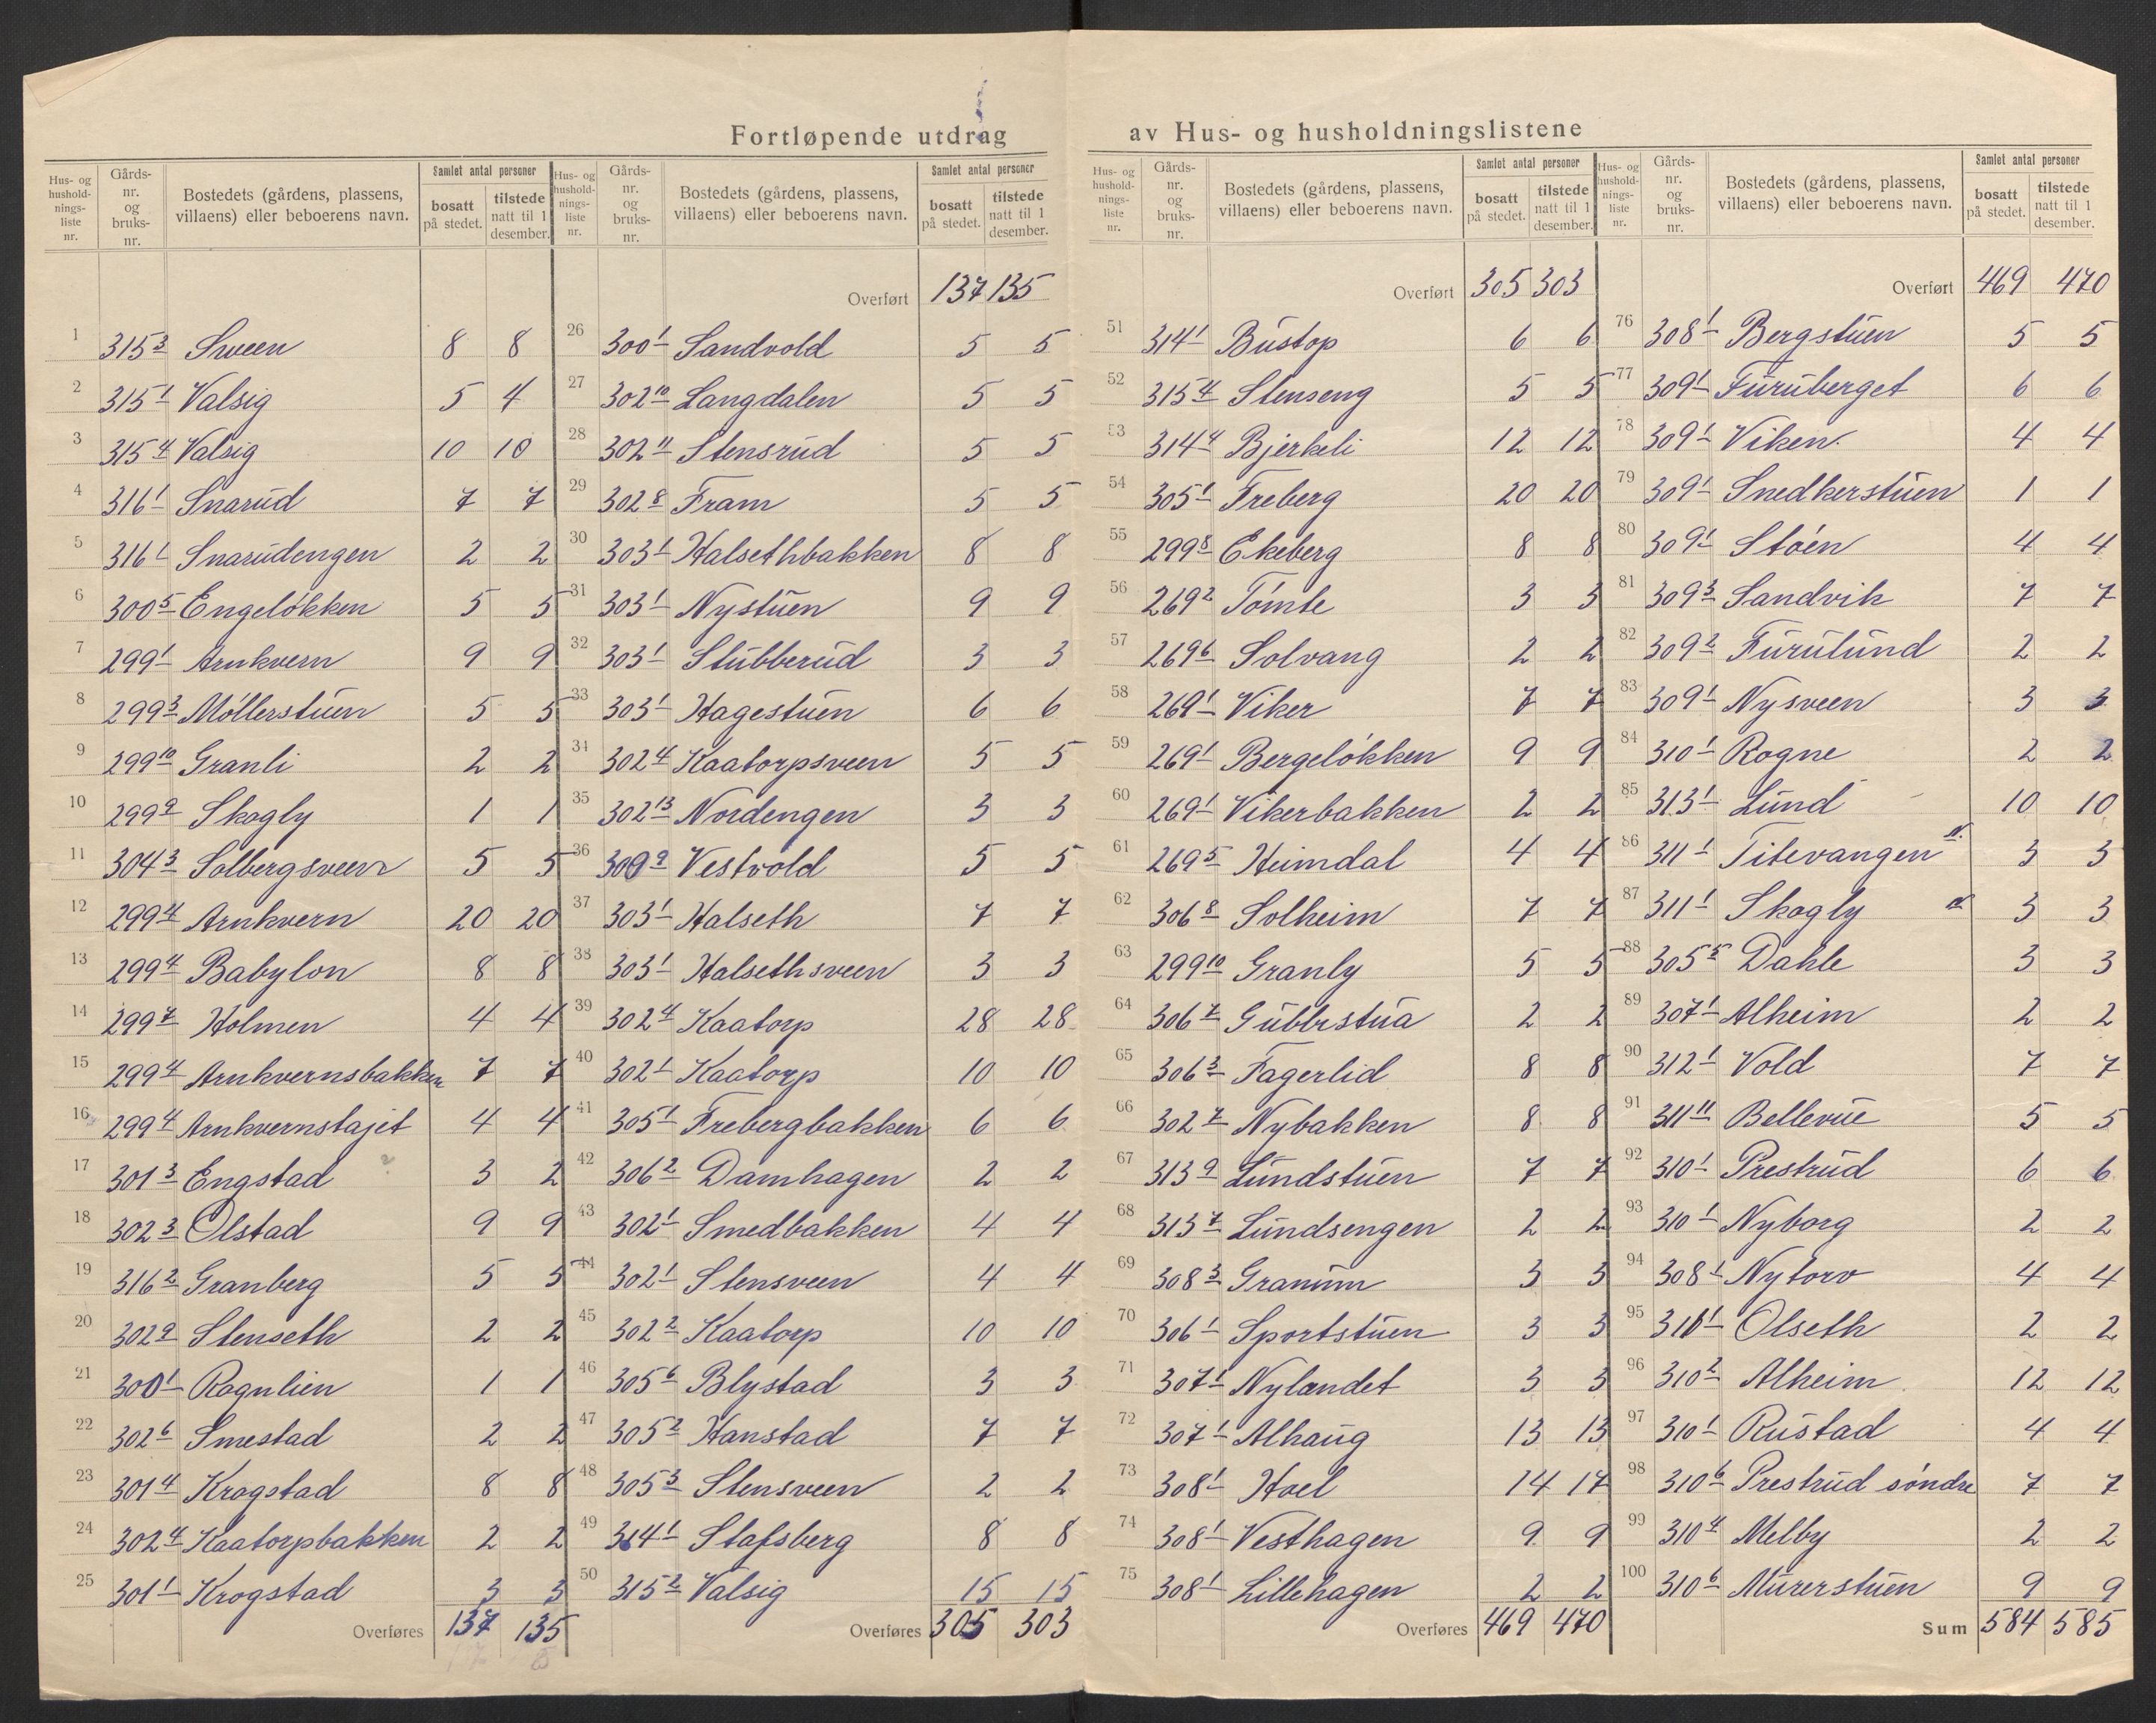 Fortløpende utdrag av Hus- og husholdningslistene
Hus- og husholdningsliste nr. | Gårds- nr. og bruks- nr. | Bostedets (gårdens, plassens, villaens) eller beboerens navn. | Samlet antal personer bosatt på stedet. | tilstede natt til 1 desember.
1 315 3 Sveen 8 8
2 315 1 Valsig 5 4
3 315 4 Valsig 10 10
4 316 1 Snarud 7 7
5 316 1 Snarudengen 2 2
6 300 5 Engeløkken 5 5
7 299 1 Arnkvern 9 9
8 299 3 Møllerstuen 5 5
9 299 10 Granli 2 2
10 299 9 Skogly 1 1
11 304 3 Solbergsveen 5 5
12 299 4 Arnkvern 20 20
13 299 4 Babylon 8 8
14 299 7 Holmen 4 4
15 299 4 Arnkvernsbakken 7 7
16 299 4 Arnkvernstajet 4 4
17 301 3 Engstad ? 3 2
18 302 3 Olstad 9 9
19 316 2 Granberg 5 5
20 302 9 Stenseth 2 2
21 300 1 Rognlien 1 1
22 302 6 Smestad 2 2
23 301 4 Krogstad 8 8
24 302 4 Kaatorpbakken 2 2
25 301 1 Krogstad 3 3
Overføres 137 135
Hus- og husholdningsliste nr. | Gårds- nr. og bruks- nr. | Bostedets (gårdens, plassens, villaens) eller beboerens navn. | Samlet antal personer bosatt på stedet. | tilstede natt til 1 desember.
Overført 137 135
26 300 1 Sandvold 5 5
27 302 10 Langdalen 5 5
28 302 11 Stensrud 5 5
29 302 8 Fram 5 5
30 303 1 Halsethbakken 8 8
31 303 1 Nystuen 9 9
32 303 1 Stubberud 3 3
33 303 1 Hagestuen 6 6
34 302 4 Kaatorpsveen 5 5
35 302 13 Nordengen 3 3
36 300 9 Vestvold 5 5
37 303 1 Halseth 7 7
38 303 1 Halsethsveen 3 3
39 302 4 Kaatorp 28 28
40 302 1 Kaatorp 10 10
41 305 1 Frebergbakken 6 6
42 306 2 Damhagen 2 2
43 302 1 Smedbakken 4 4
44 302 1 Stensveen 4 4
45 302 2 Kaatorp 10 10
46 305 6 Blystad 3 3
47 305 2 Hanstad 7 7
48 305 3 Stensveen 2 2
49 314 1 Stafsberg 8 8
50 315 2 Valsig 15 15
Overføres 305 303
Hus- og husholdningsliste nr. | Gårds- nr. og bruks- nr. | Bostedets (gårdens, plassens, villaens) eller beboerens navn. | Samlet antal personer bosatt på stedet. | tilstede natt til 1 desember.
Overført 305 303
51 314 1 Bustop 6 6
52 315 4 Stenseng 5 5
53 314 4 Bjerkeli 12 12
54 305 1 Freberg 20 20
55 299 8 Ekeberg 8 8
56 269 2 Tømte 3 3
57 269 6 Solvang 2 2
58 269 1 Viker 7 7
59 269 1 Bergeløkken 9 9
60 269 1 Vikerbakken 2 2
61 269 5 Heimdal 4 4
62 306 8 Solheim 7 7
63 299 10 Granly 5 5
64 306 7 Gubbestua 2 2
65 306 3 Fagerlid 8 8
66 302 7 Nybakken 8 8
67 313 9 Lundstuen 7 7
68 313 7 Lundsengen 2 2
69 308 3 Granum 3 3
70 306 1 Sportstuen 3 3
71 307 1 Nylandet 3 3
72 307 1 Alhaug 13 13
73 308 1 Hoel 14 17
74 308 1 Vesthagen 9 9
75 308 1 Lillehagen 2 2
Overføres 469 470
Hus- og husholdningsliste nr. | Gårds- nr. og bruks- nr. | Bostedets (gårdens, plassens, villaens) eller beboerens navn. | Samlet antal personer bosatt på stedet. | tilstede natt til 1 desember.
Overført 469 470
76 308 1 Bergstuen 5 5
77 309 1 Furuberget 6 6
78 309 1 Viken 4 4
79 309 1 Snedkerstuen 1 1
80 309 1 Støen 4 4
81 309 3 Sandvik 7 7
82 309 2 Furulund 2 2
83 309 1 Nysveen 3 3
84 310 1 Rogne 2 2
85 313 1 Lund 10 10
86 311 1 Titevangen 3 3
87 311 1 Skogly 3 3
88 305 5 Dahle 3 3
89 307 1 Alheim 2 2
90 312 1 Vold 7 7
91 311 11 Bellevue 5 5
92 310 1 Prestrud 6 6
93 310 1 Nyborg 2 2
94 308 1 Nytorv 4 4
95 310 1 Olseth 2 2
96 310 2 Alheim 12 12
97 310 1 Rustad 4 4
98 310 6 Prestrud søndre 7 7
99 310 4 Melby 2 2
100 310 6 Murerstuen 9 9
Sum 584 585